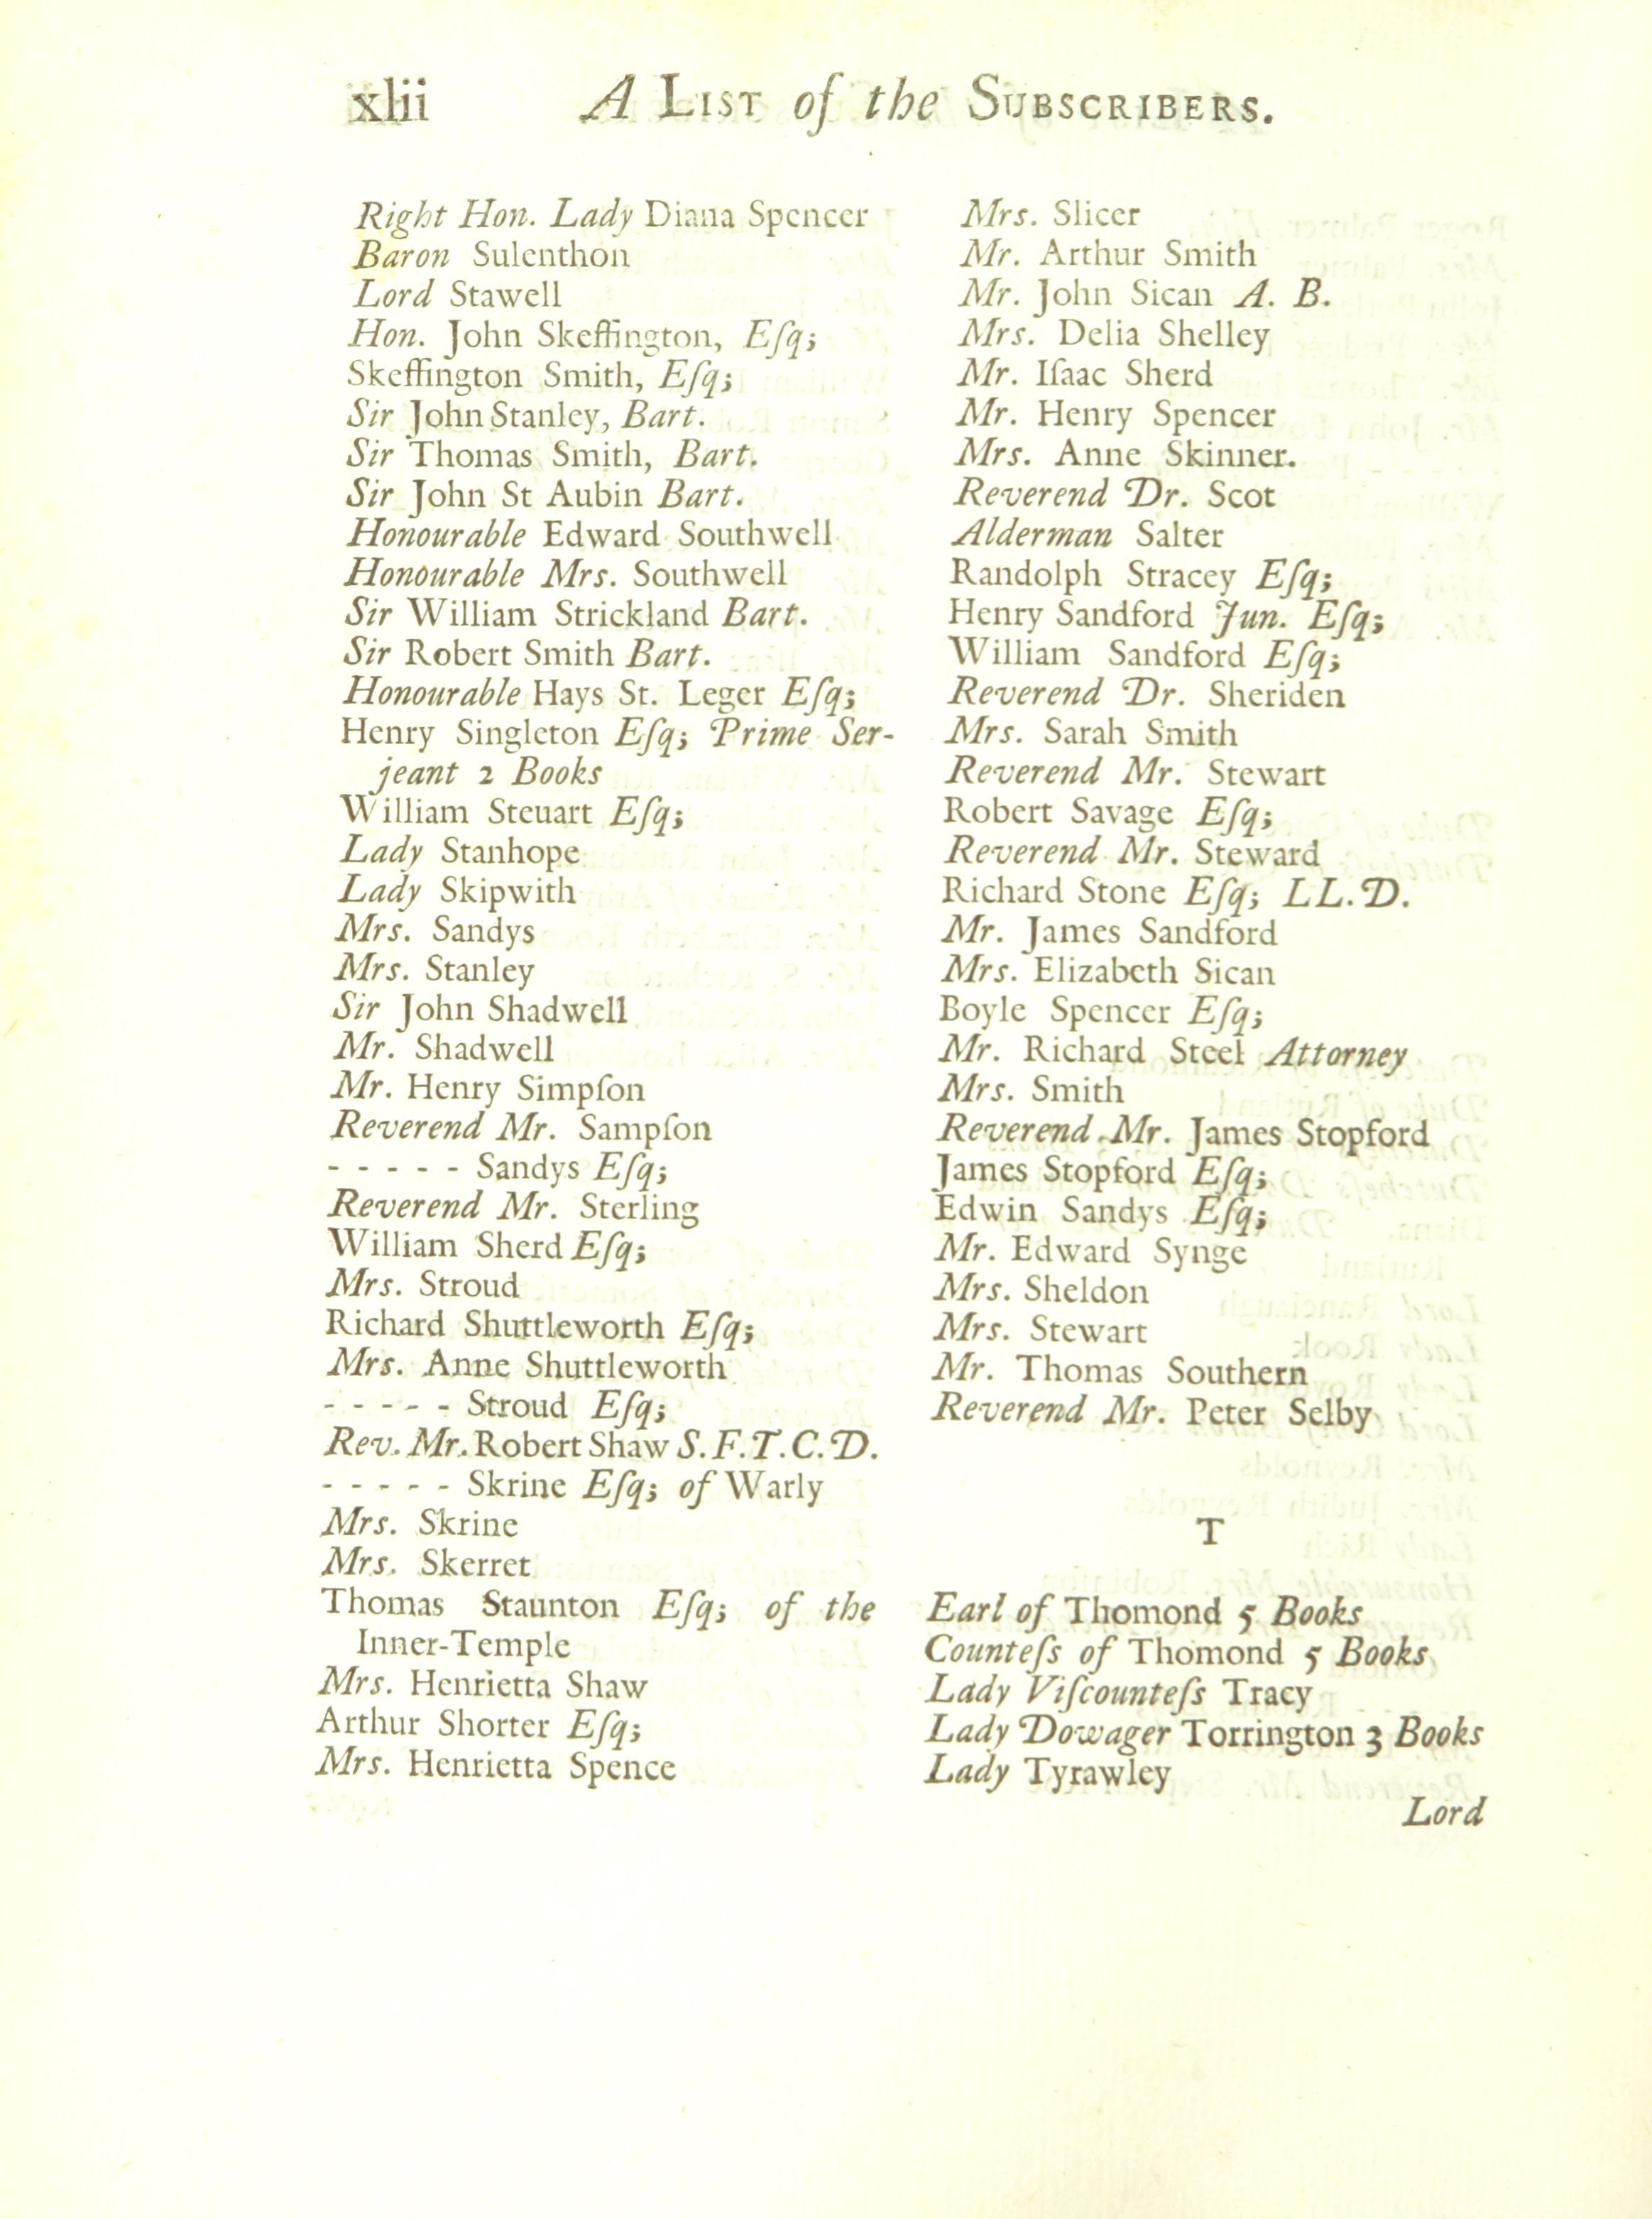 xlii A LIST of the SUBSCRIBERS.
Right Hon. Lady Diana Spencer
Baron Sulenthon
Lord Stawell
Hon. John Skeffington, Eſq;
Skeffington Smith, Eſq;
Sir John Stanley, Bart.
Sir Thomas Smith, Bart.
Sir John St Aubin Bart.
Honourable Edward Southwell
Honourable Mrs. Southwell
Sir William Strickland Bart.
Sir Robert Smith Bart.
Honourable Hays St. Leger Eſq;
Henry Singleton Eſq; Prime Ser-
jeant 2 Books
William Steuart Eſq;
Lady Stanhope
Lady Skipwith
Mrs. Sandys
Mrs. Stanley
Sir John Shadwell
Mr. Shadwell
Mr. Henry Simpſon
Reverend Mr. Sampſon
- - - - - Sandys Eſq;
Reverend Mr. Sterling
William Sherd Eſq;
Mrs. Stroud
Richard Shuttleworth Eſq;
Mrs. Anne Shuttleworth
- - - - - Stroud Eſq;
Rev. Mr. Robert Shaw S. F. T. C. D.
- - - - - Skrine Eſq; of Warly
Mrs. Skrine
Mrs. Skerret
Thomas Staunton Eſq; of the
Inner-Temple
Mrs. Henrietta Shaw
Arthur Shorter Eſq;
Mrs. Henrietta Spence
Mrs. Slicer
Mr. Arthur Smith
Mr. John Sican A. B.
Mrs. Delia Shelley
Mr. Iſaac Sherd
Mr. Henry Spencer
Mrs. Anne Skinner.
Reverend Dr. Scot
Alderman Salter
Randolph Stracey Eſq;
Henry Sandford Jun. Eſq;
William Sandford Eſq;
Reverend Dr. Sheriden
Mrs. Sarah Smith
Reverend Mr. Stewart
Robert Savage Eſq;
Reverend Mr. Steward
Richard Stone Eſq; LL. D.
Mr. James Sandford
Mrs. Elizabeth Sican
Boyle Spencer Eſq;
Mr. Richard Steel Attorney
Mrs. Smith
Reverend Mr. James Stopford
James Stopford Eſq;
Edwin Sandys Eſq;
Mr. Edward Synge
Mrs. Sheldon
Mrs. Stewart
Mr. Thomas Southern
Reverend Mr. Peter Selby
T
Earl of Thomond 5 Books
Counteſs of Thomond 5 Books
Lady Viſcounteſs Tracy
Lady Dowager Torrington 3 Books
Lady Tyrawley
Lord